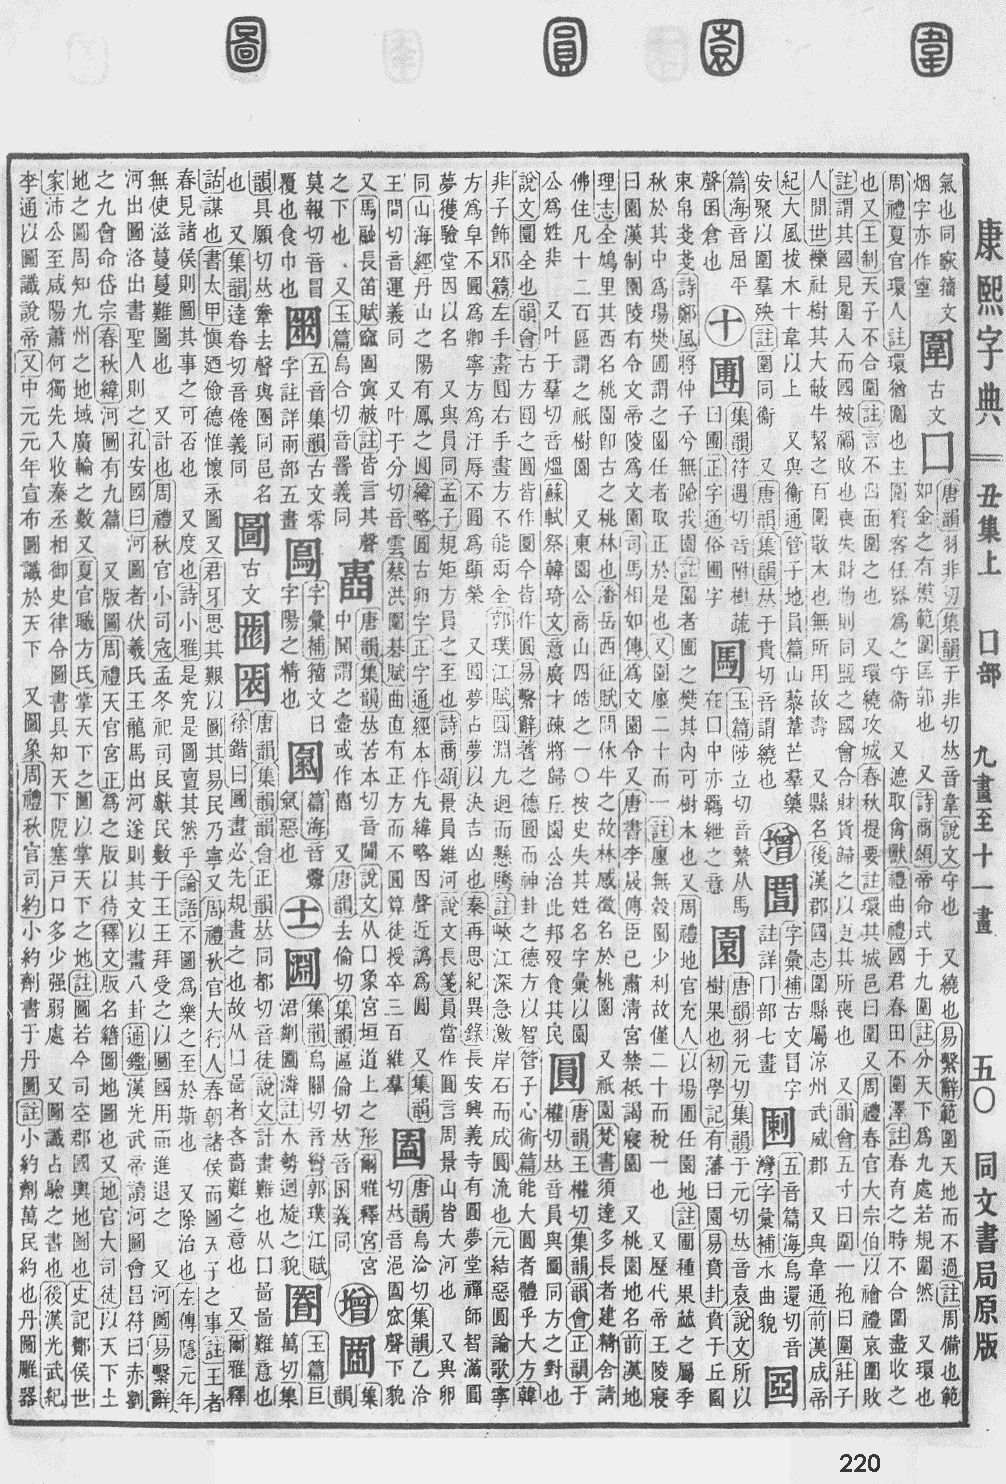 康熙字典 丑集上 囗部 九畫至十一畫 五〇 同文書局原版
圍 古文 囗 唐韻羽非切集韻于非切𠀤音韋說文守也 又繞也易繫辭範圍天地而不過註周備也範
如金之有模範圍匡郭也 又詩商頌帝命式于九圍註分天下爲九處若規圍然 又環也
周禮夏官環人註環猶圍也主圍賓客任器爲之守衞 又遮取禽獸禮曲禮國君春田不圍澤註春有之時不合圍盡收之
也又王制天子不合圍註言不四面圍之也 又環繞攻城春秋提要註環其城邑曰圍又周禮春官大宗伯以禬禮哀圍敗
註謂其國見圍入而國被禍敗也喪失財物則同盟之國會合財貨歸之以更其所喪也 又韻會五寸曰圍一抱曰圍莊子
人閒世櫟社樹其大蔽牛絜之百圍散木也無所用故壽 又縣名後漢郡國志圍縣屬涼州武威郡 又與韋通前漢成帝
紀大風拔木十韋以上 又與衞通管子地員篇山藜葦芒羣藥
安聚以圍羣殃註圍同衞 又唐韻集韻𠀤于貴切音謂繞也
篇海音屈平
聲囷倉也 十 團 集韻符遇切音附樹蔬
曰團正字通俗圃字 馬 玉篇陟立切音縶从馬
在口中亦羈紲之意 園 唐韻羽元切集韻于元切𠀤音袁說文所以
樹果也初學記有藩曰園易賁卦賁于丘園
束帛戔戔詩鄭風將仲子兮無踰我園註園者圃之樊其內可樹木也又周禮地官充人以場圃任園地註圃種果蓏之屬季
秋於其中爲場樊圃謂之園任者取正於是也又園廛二十而一註廛無穀園少利故僅二十而稅一也 又歷代帝王陵寢
曰園漢制園陵有令文帝陵爲文園司馬相如傳爲文園令又唐書李晟傳臣已肅淸宮禁祇謁寢園 又桃園地名前漢地
理志全鳩里其西名桃園卽古之桃林也潘岳西征賦問休牛之故林感徵名於桃園 又祇園梵書須達多長者建精舍請
佛住凡十二百區謂之祇樹園 又東園公商山四皓之一〇按史失其姓名字彙以園
公爲姓非 又叶于羣切音熅蘇軾祭韓琦文意廣才疎將歸丘園公治此邦歿食其民
圓 唐韻王權切集韻韻會正韻于
權切𠀤音員與圜同方之對也
說文圜全也韻會古方圓之圓皆作圜今皆作圓易繫辭蓍之德圓而神卦之德方以智管子心術篇能大圓者體乎大方韓
非子飾邪篇左手畫圓右手畫方不能兩全郭璞江賦圓淵九迴而懸騰註峽江深急激岸石而成圓流也元結惡圓論歌寧
方爲皁不圓爲卿寧方爲汙辱不圓爲顯榮 又圓夢占夢以決吉凶也秦再思紀異錄長安興義寺有圓夢堂禪師智滿圓
夢獲驗堂因以名 又與員同孟子規矩方員之至也詩商頌景員維河說文長箋員當作圓言周景山皆大河也 又與卵
同山海經丹山之陽有鳳之圓緯略圓古卵字正字通經本作丸緯略因聲近譌爲圓 又集韻
王問切音運義同 又叶于分切音雲蔡洪圍棊賦曲直有正方而不圓算徒授卒三百維羣
又馬融長笛賦窾圓窴赦註皆言其聲
之下也 又玉篇烏合切音罯義同 壼 唐韻集韻𠀤苦本切音閫說文从囗象宮垣道上之形爾雅釋宮宮
中閧謂之壼或作𡈼 又唐韻去倫切集韻區倫切𠀤音囷義同 增
莫報切音冒
覆也食巾也 五音集韻古文零
字註詳雨部五畫 字彙補籀文日
字陽之精也 篇海音爨
氣惡也 士 淵 集韻烏關切音彎郭璞江賦
㴫鄰圓潾註水勢迴旋之貌 玉篇巨
萬切集
韻具願切𠀤𢍏去聲與圈同邑名
也 又集韻達眷切音倦義同 圖 古文 唐韻集韻韻會正韻𠀤同都切音徒說文計畫難也从囗啚啚難意也
徐鍇曰圖畫必先規畫之也故从囗啚者吝嗇難之意也 又爾雅釋
詁謀也書太甲愼廼儉德惟懷永圖又君牙思其艱以圖其易民乃寧又周禮秋官大行人春朝諸侯而圖天子之事註王者
春見諸侯則圖其事之可否也 又度也詩小雅是究是圖亶其然乎論語不圖爲樂之至於斯也 又除治也左傳隱元年
無使滋蔓蔓難圖也 又計也周禮秋官小司寇孟冬祀司民獻民數于王王拜受之以圖國用而進退之 又河圖易繫辭
河出圖洛出書聖人則之孔安國曰河圖者伏羲氏王龍馬出河遂則其文以畫八卦通鑑漢光武帝讀河圖會昌符曰赤劉
之九會命岱宗春秋緯河圖有九篇 又版圖周禮天官宮正爲之版以待釋文版名籍圖地圖也又地官大司徒以天下土
地之圖周知九州之地域廣輪之數又夏官職方氏掌天下之圖以掌天下之地註圖若今司空郡國輿地圖也史記酇侯世
家沛公至咸陽蕭何獨先入收秦丞相御史律令圖書具知天下阨塞戸口多少强弱處 又圖讖占驗之書也後漢光武紀
李通以圖讖說帝又中元元年宣布圖讖於天下 又圖象周禮秋官司約小約劑書于丹圖註小約劑萬民約也丹圖雕器
220